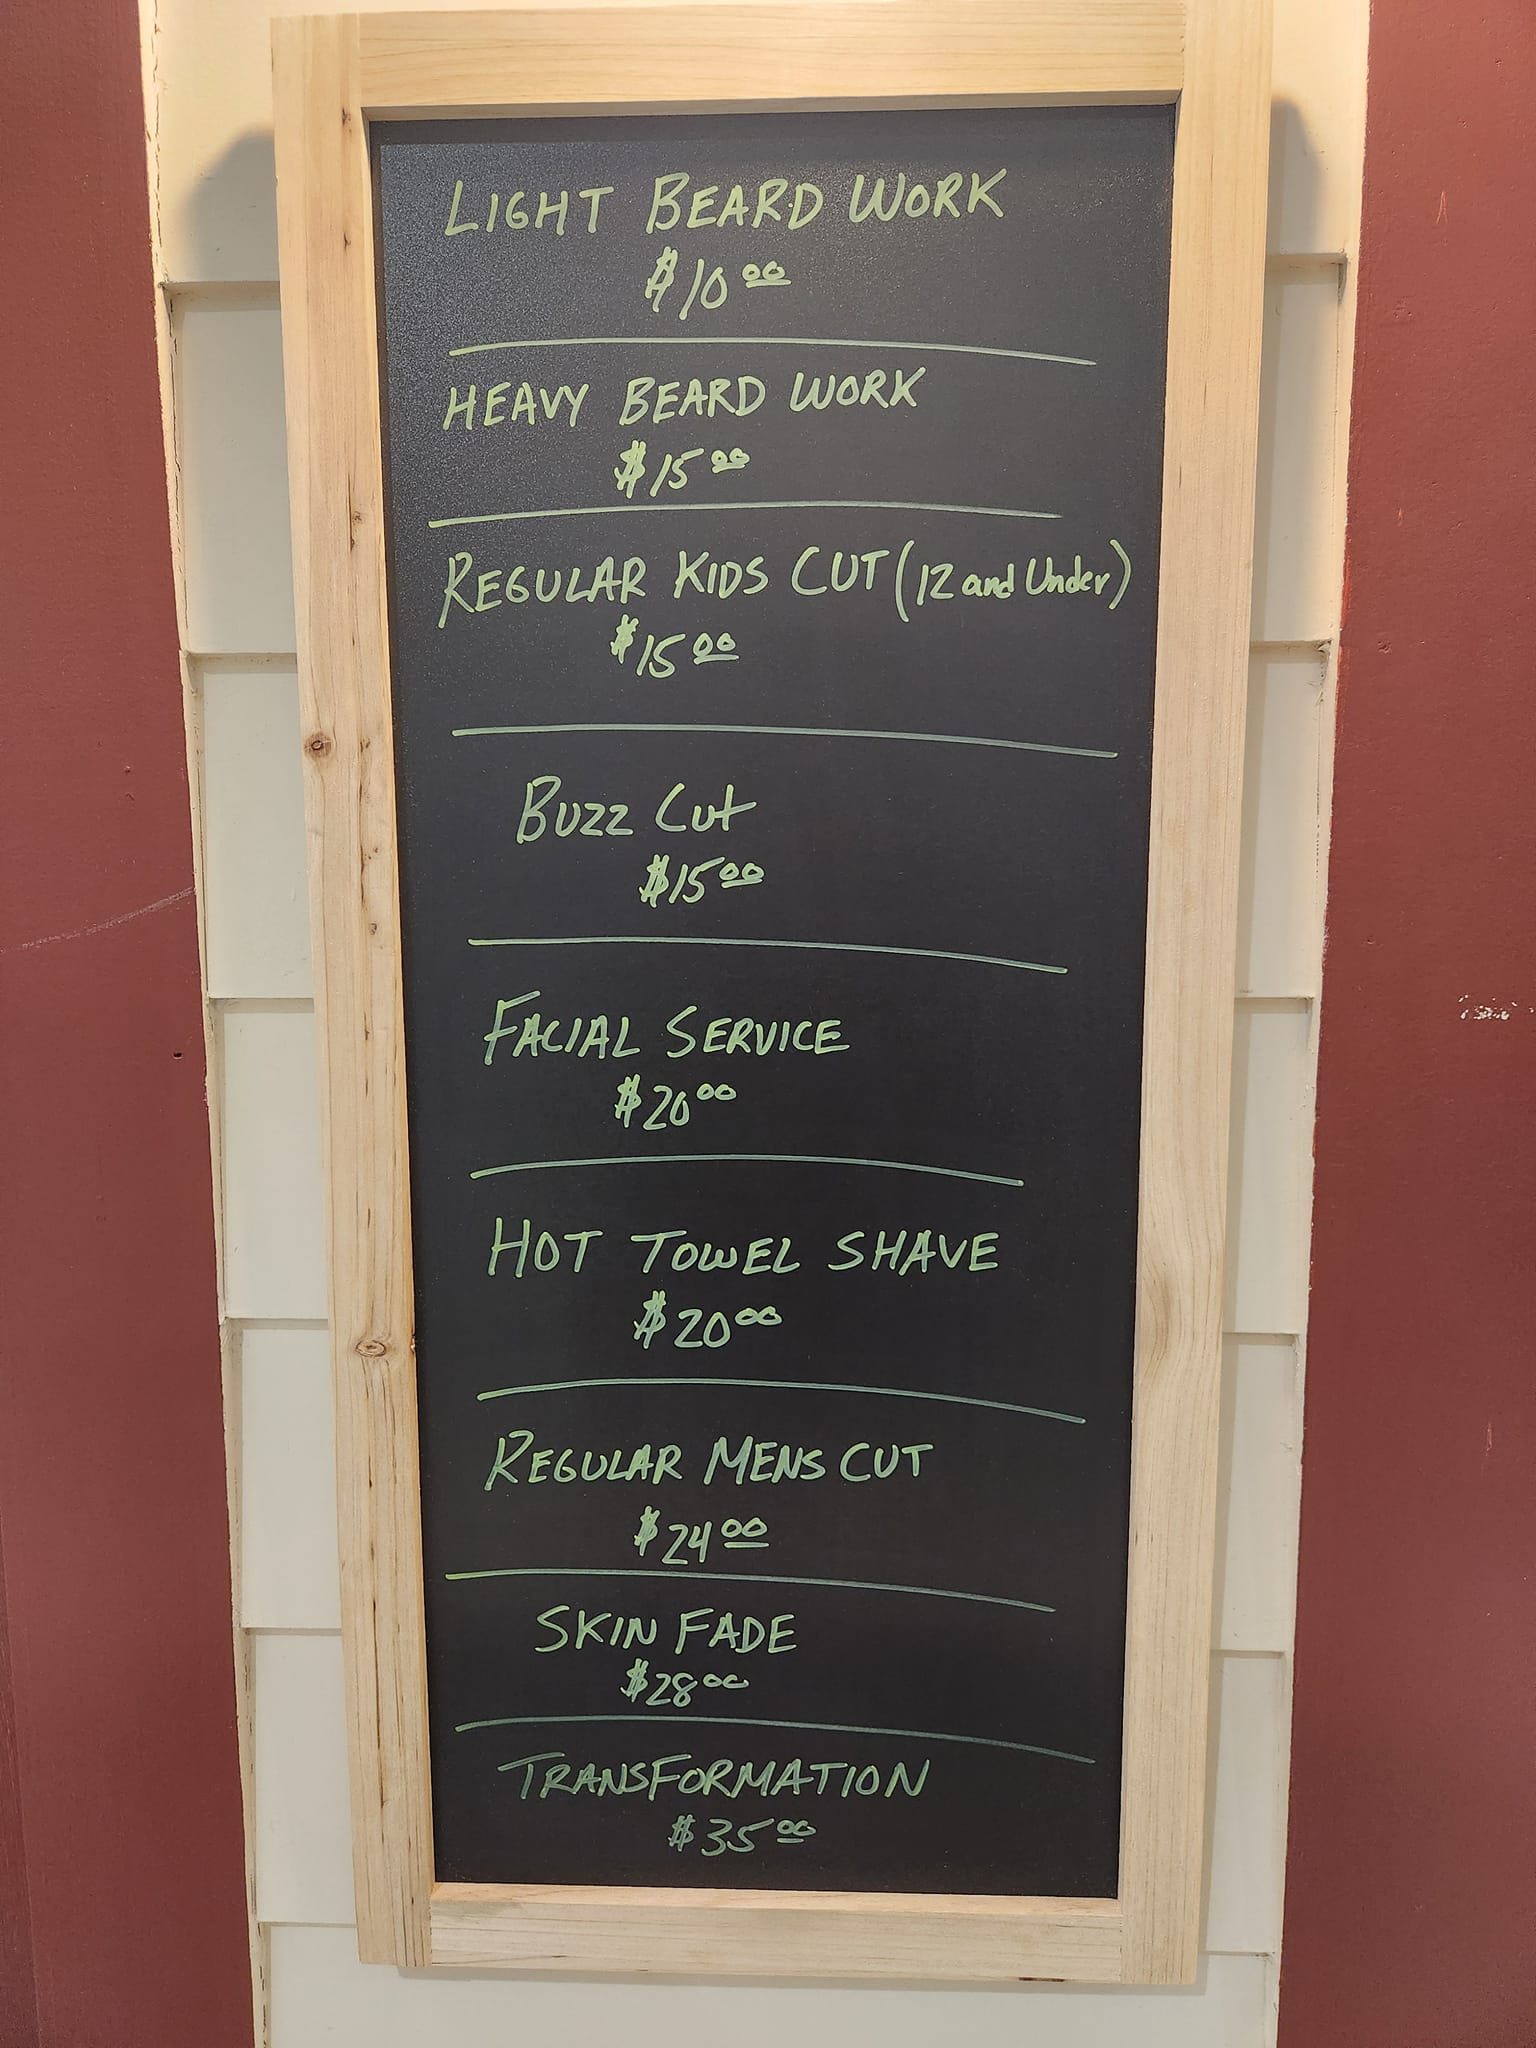 LIGHT BEARD WORK
$10.00
HEAVY BEARD WORK
$15.00
REGULAR KIDS CUT (12 and Under)
$15.00
BUZZ CUT
$15.00
FACIAL SERVICE
$20.00
HOT TOWEL SHAVE
$20.00
REGULAR MENS CUT
$24.00
SKIN FADE
$28.00
TRANSFORMATION
$35.00